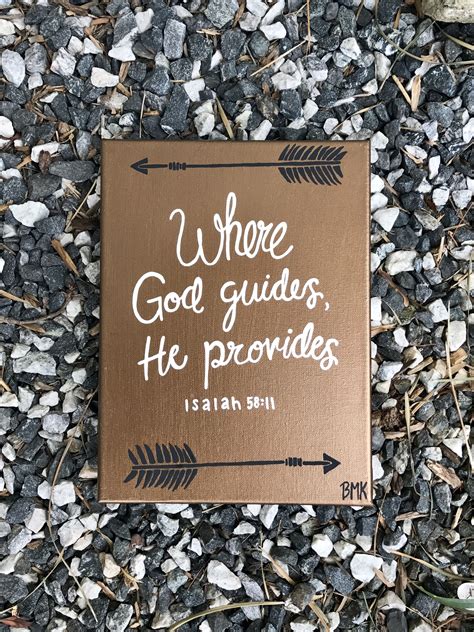 Where
God guides,
He provides
Isaiah 58:11
BMK